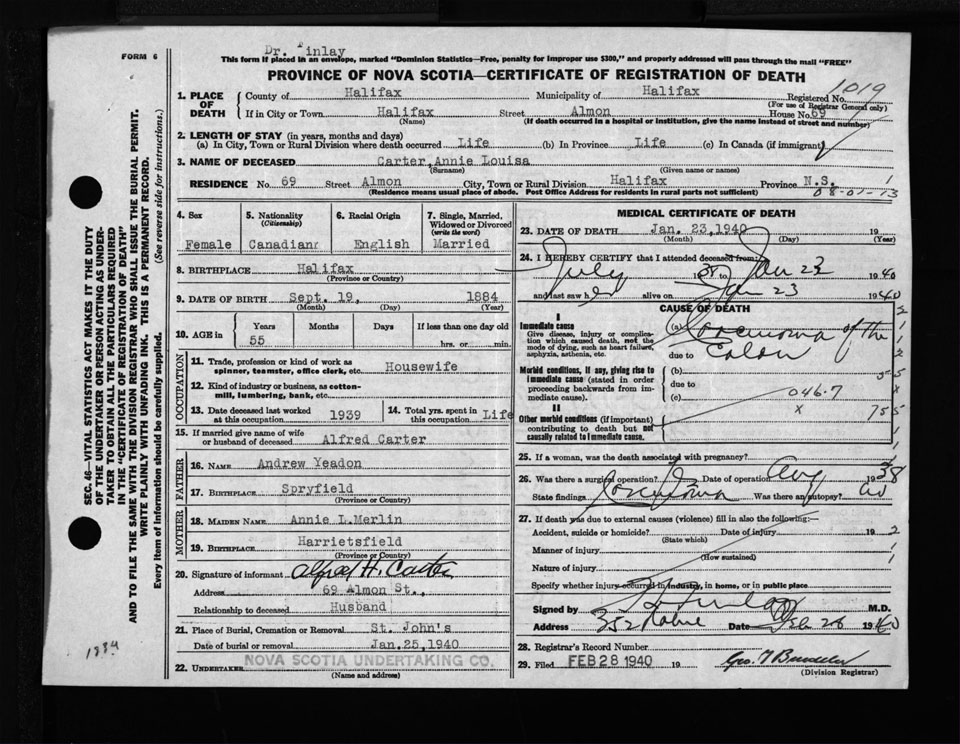 FORM 6
Dr. Finlay
This form if placed in an envelope, marked "Dominion Statistics—Free, penalty for improper use $300," and properly addressed will pass through the mail "FREE"
PROVINCE OF NOVA SCOTIA—CERTIFICATE OF REGISTRATION OF DEATH
1. PLACE OF DEATH
County of Halifax Municipality of Halifax Registered No. 1019
(For use of Registrar General only)
If in City or Town Halifax Street Almon House No. 69
(Name) (If death occurred in a hospital or institution, give the name instead of street and number)
2. LENGTH OF STAY (in years, months and days)
(a) In City, Town or Rural Division where death occurred Life (b) In Province Life (c) In Canada (if immigrant)
3. NAME OF DECEASED Carter, Annie Louisa
(Surname) (Given name or names)
RESIDENCE No. 69 Street Almon City, Town or Rural Division Halifax Province N.S. 1
(Residence means usual place of abode. Post Office Address for residents in rural parts not sufficient) 08-01-13
4. Sex
Female
5. Nationality
(Citizenship)
Canadian
6. Racial Origin
English
7. Single, Married, Widowed or Divorced
(write the word)
Married
8. BIRTHPLACE Halifax
(Province or Country)
9. DATE OF BIRTH Sept. 19, 1884
(Month) (Day) (Year)
10. AGE in
Years Months Days If less than one day old
55 hrs. or min.
OCCUPATION
11. Trade, profession or kind of work as
spinner, teamster, office clerk, etc. Housewife
12. Kind of industry or business, as cotton-
mill, lumbering, bank, etc.
13. Date deceased last worked
at this occupation 1939
14. Total yrs. spent in
this occupation Life
15. If married give name of wife
or husband of deceased Alfred Carter
FATHER
16. NAME Andrew Yeadon
17. BIRTHPLACE Spryfield
(Province or Country)
MOTHER
18. MAIDEN NAME Annie L. Merlin
19. BIRTHPLACE Harrietsfield
(Province or Country)
20. Signature of informant Alfred H. Carter
Address 69 Almon St.,
Relationship to deceased Husband
21. Place of Burial, Cremation or Removal St. John's
Date of burial or removal Jan. 25, 1940
22. UNDERTAKER NOVA SCOTIA UNDERTAKING CO.
(Name and address)
MEDICAL CERTIFICATE OF DEATH
23. DATE OF DEATH Jan. 23, 1940 19
(Month) (Day) (Year)
24. I HEREBY CERTIFY that I attended deceased from:
July 1938 to Jan 23 1940
and last saw her alive on Jan 23 1940
CAUSE OF DEATH
I
Immediate cause
Give disease, injury or complica-
tion which caused death, not the
mode of dying, such as heart failure,
asphyxia, asthenia, etc.
(a) Carcinoma of the
due to Colon
Morbid conditions, if any, giving rise to
immediate cause (stated in order
proceeding backwards from im-
mediate cause).
(b)
due to
(c) 046.7
x 755
II
Other morbid conditions (if important)
contributing to death but not
causally related to immediate cause.
25. If a woman, was the death associated with pregnancy?
26. Was there a surgical operation? Date of operation Aug 1938
State findings Carcinoma Was there an autopsy? no
27. If death was due to external causes (violence) fill in also the following:—
Accident, suicide or homicide? Date of injury 19
(State which)
Manner of injury
(How sustained)
Nature of injury
Specify whether injury occurred in industry, in home, or in public place
Signed by Finlay M.D.
Address 352 Robie Date Feb 26 1940
28. Registrar's Record Number
29. Filed FEB 28 1940 19
(Division Registrar)
SEC. 46—VITAL STATISTICS ACT MAKES IT THE DUTY
OF THE UNDERTAKER OR PERSON ACTING AS UNDER-
TAKER TO OBTAIN ALL THE PARTICULARS REQUIRED
IN THE "CERTIFICATE OF REGISTRATION OF DEATH"
AND TO FILE THE SAME WITH THE DIVISION REGISTRAR WHO SHALL ISSUE THE BURIAL PERMIT.
WRITE PLAINLY WITH UNFADING INK. THIS IS A PERMANENT RECORD.
Every item of information should be carefully supplied. (See reverse side for instructions.)
1884